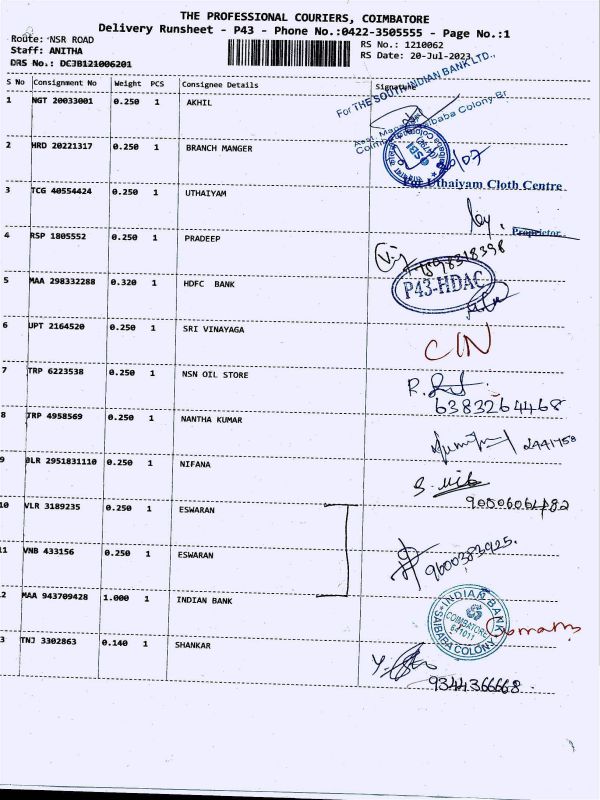 THE PROFESSIONAL COURIERS, COIMBATORE
Delivery Runsheet - P43 - Phone No.:0422-3505555 - Page No.:1
Route: NSR ROAD
Staff: ANITHA
DRS No.: DCJB121006201
RS No.: 1210062
RS Date: 20-Jul-2023
S No Consignment No Weight PCS Consignee Details Signature
For THE SOUTH INDIAN BANK LTD.,
1 NGT 20033001 0.250 1 AKHIL
2 HRD 20221317 0.250 1 BRANCH MANGER
3 TCG 40554424 0.250 1 UTHAIYAM
For Uthaiyam Cloth Centre
Proprietor
4 RSP 1805552 0.250 1 PRADEEP
5 MAA 298332288 0.320 1 HDFC BANK
P43-HDAC
6 UPT 2164520 0.250 1 SRI VINAYAGA
CIN
7 TRP 6223538 0.250 1 NSN OIL STORE
6383264468
8 TRP 4958569 0.250 1 NANTHA KUMAR
2441758
9 BLR 2951831110 0.250 1 NIFANA
10 VLR 3189235 0.250 1 ESWARAN
11 VNB 433156 0.250 1 ESWARAN
9600383925.
2 MAA 943709428 1.000 1 INDIAN BANK
INDIAN BANK
COIMBATORE
641011
SAIBABA COLONY
3 TNJ 3302863 0.140 1 SHANKAR
9344366668.